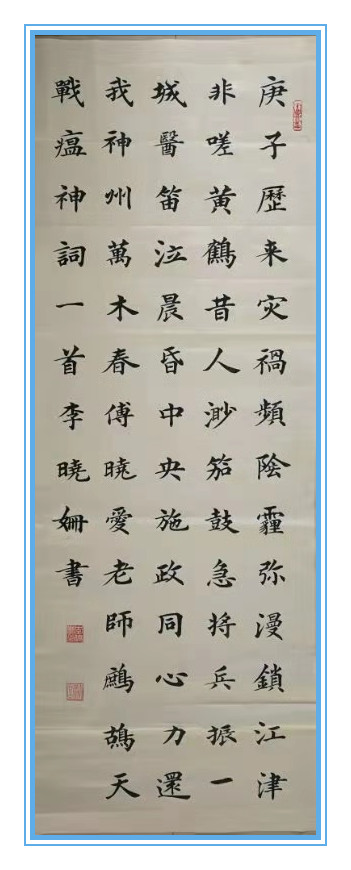 庚子歷来灾禍頻陰霾弥漫鎖江津
非嗟黄鶴昔人渺笳鼓急将兵振一
城醫笛泣晨昏中央施政同心力還
我神州萬木春傅曉愛老師鷓鴣天
戰瘟神詞一首李曉姍書